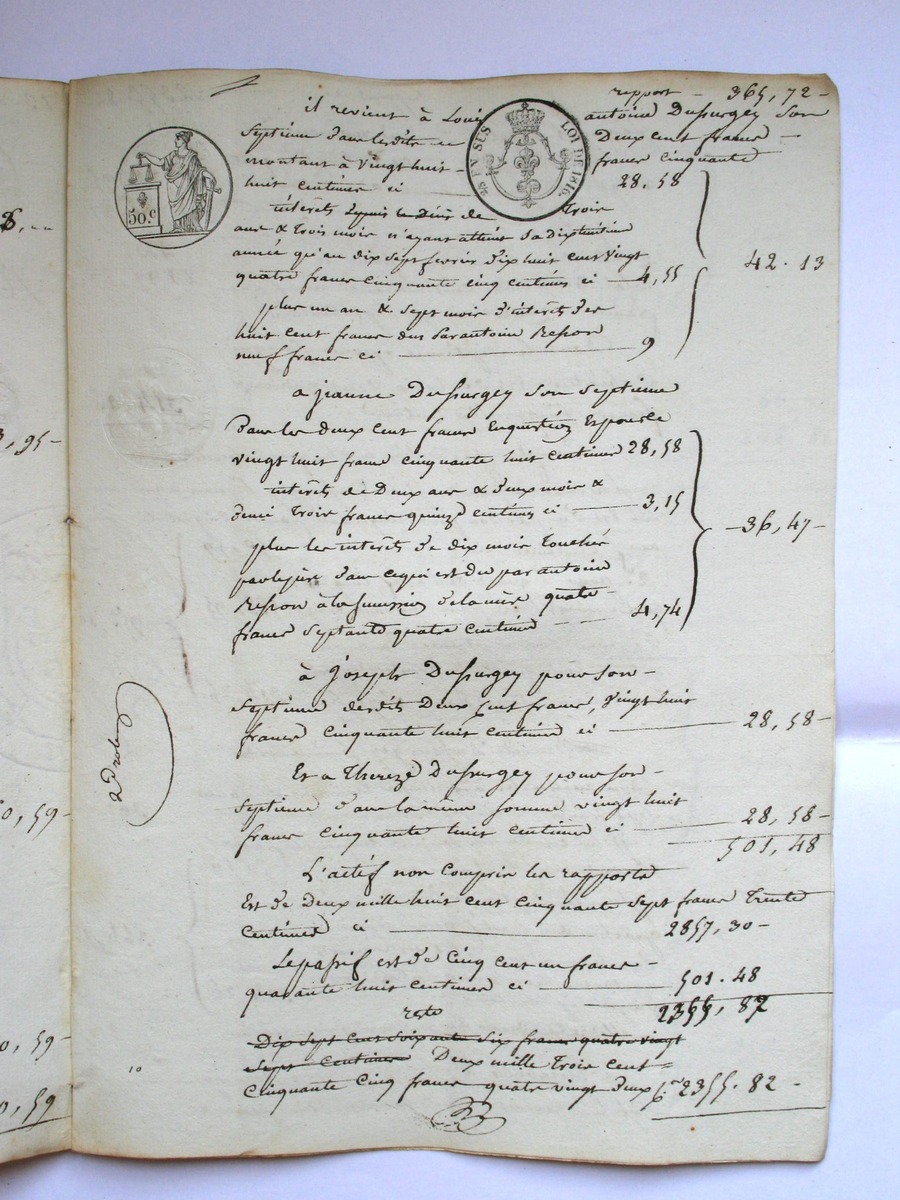 report - 365,72 -
il revient à Louis antoine Dussurgey son
Septieme dans lesdits deux cent francs -
montant à vingt huit francs cinquante
huit centimes ci 28,58
interets depuis le deces de trois
ans & trois mois n'ayant atteint sa dixhuitieme
année qu'au dix sept fevrier dix huit cent vingt
quatre francs cinquante cinq centimes ci 4,55
42.13
plus un an & sept mois d'interets des
huit cent francs dus par antoine Resson
neuf francs ci 9
a jeanne Dussurgey son septieme
Dans les deux cent francs
vingt huit francs cinquante huit centimes 28,58
interets de Deux ans & deux mois &
demi trois francs quinze centimes ci 3,15
- 36,47 -
plus les interets de dix mois touchés
par le pere dans ce qui est du par antoine
Resson à la succession de la mère quatre
francs septante quatre centimes 4,74
à joseph Dussurgey pour son -
septieme desdits Deux Cent francs, vingt huit
francs cinquante huit centimes ci 28,58 -
Et a Thereze Dussurgey pour son -
septieme dans la même somme vingt huit
francs cinquante huit centimes ci 28,58 -
501,48
L'actif non compris les rapports
Est de deux mille huit cent cinquante sept francs trente
centimes ci 2857,30 -
Le passif est de cinq cent un francs -
quarante huit centimes ci 501.48
reste 2355,82
Dix sept cent soixante six francs quatre vingt
sept centimes Deux mille trois cent =
cinquante cinq francs quatre vingt deux 2355.82 -
50.c
LOI DE 1816.
10
8, ..
3,95 -
0,59 -
0,59 -
0,59